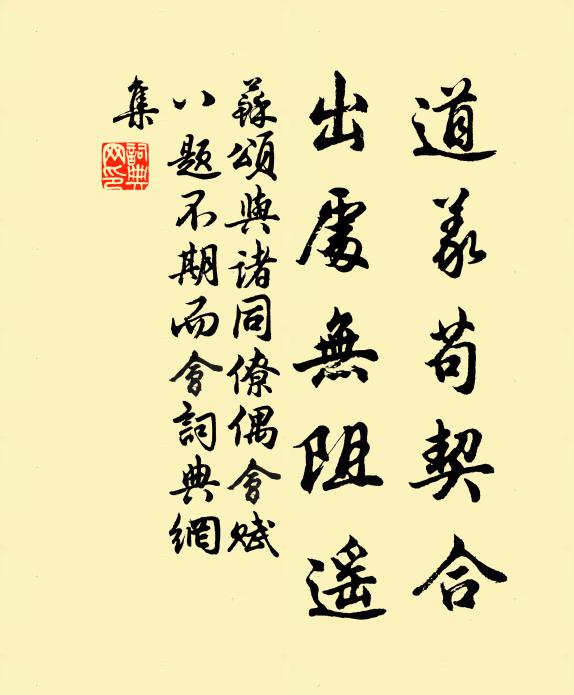 道義苟契合
出處無阻遥
蘇頌與諸同僚偶會賦
八題不期而會詞典網
集
詞典
网印